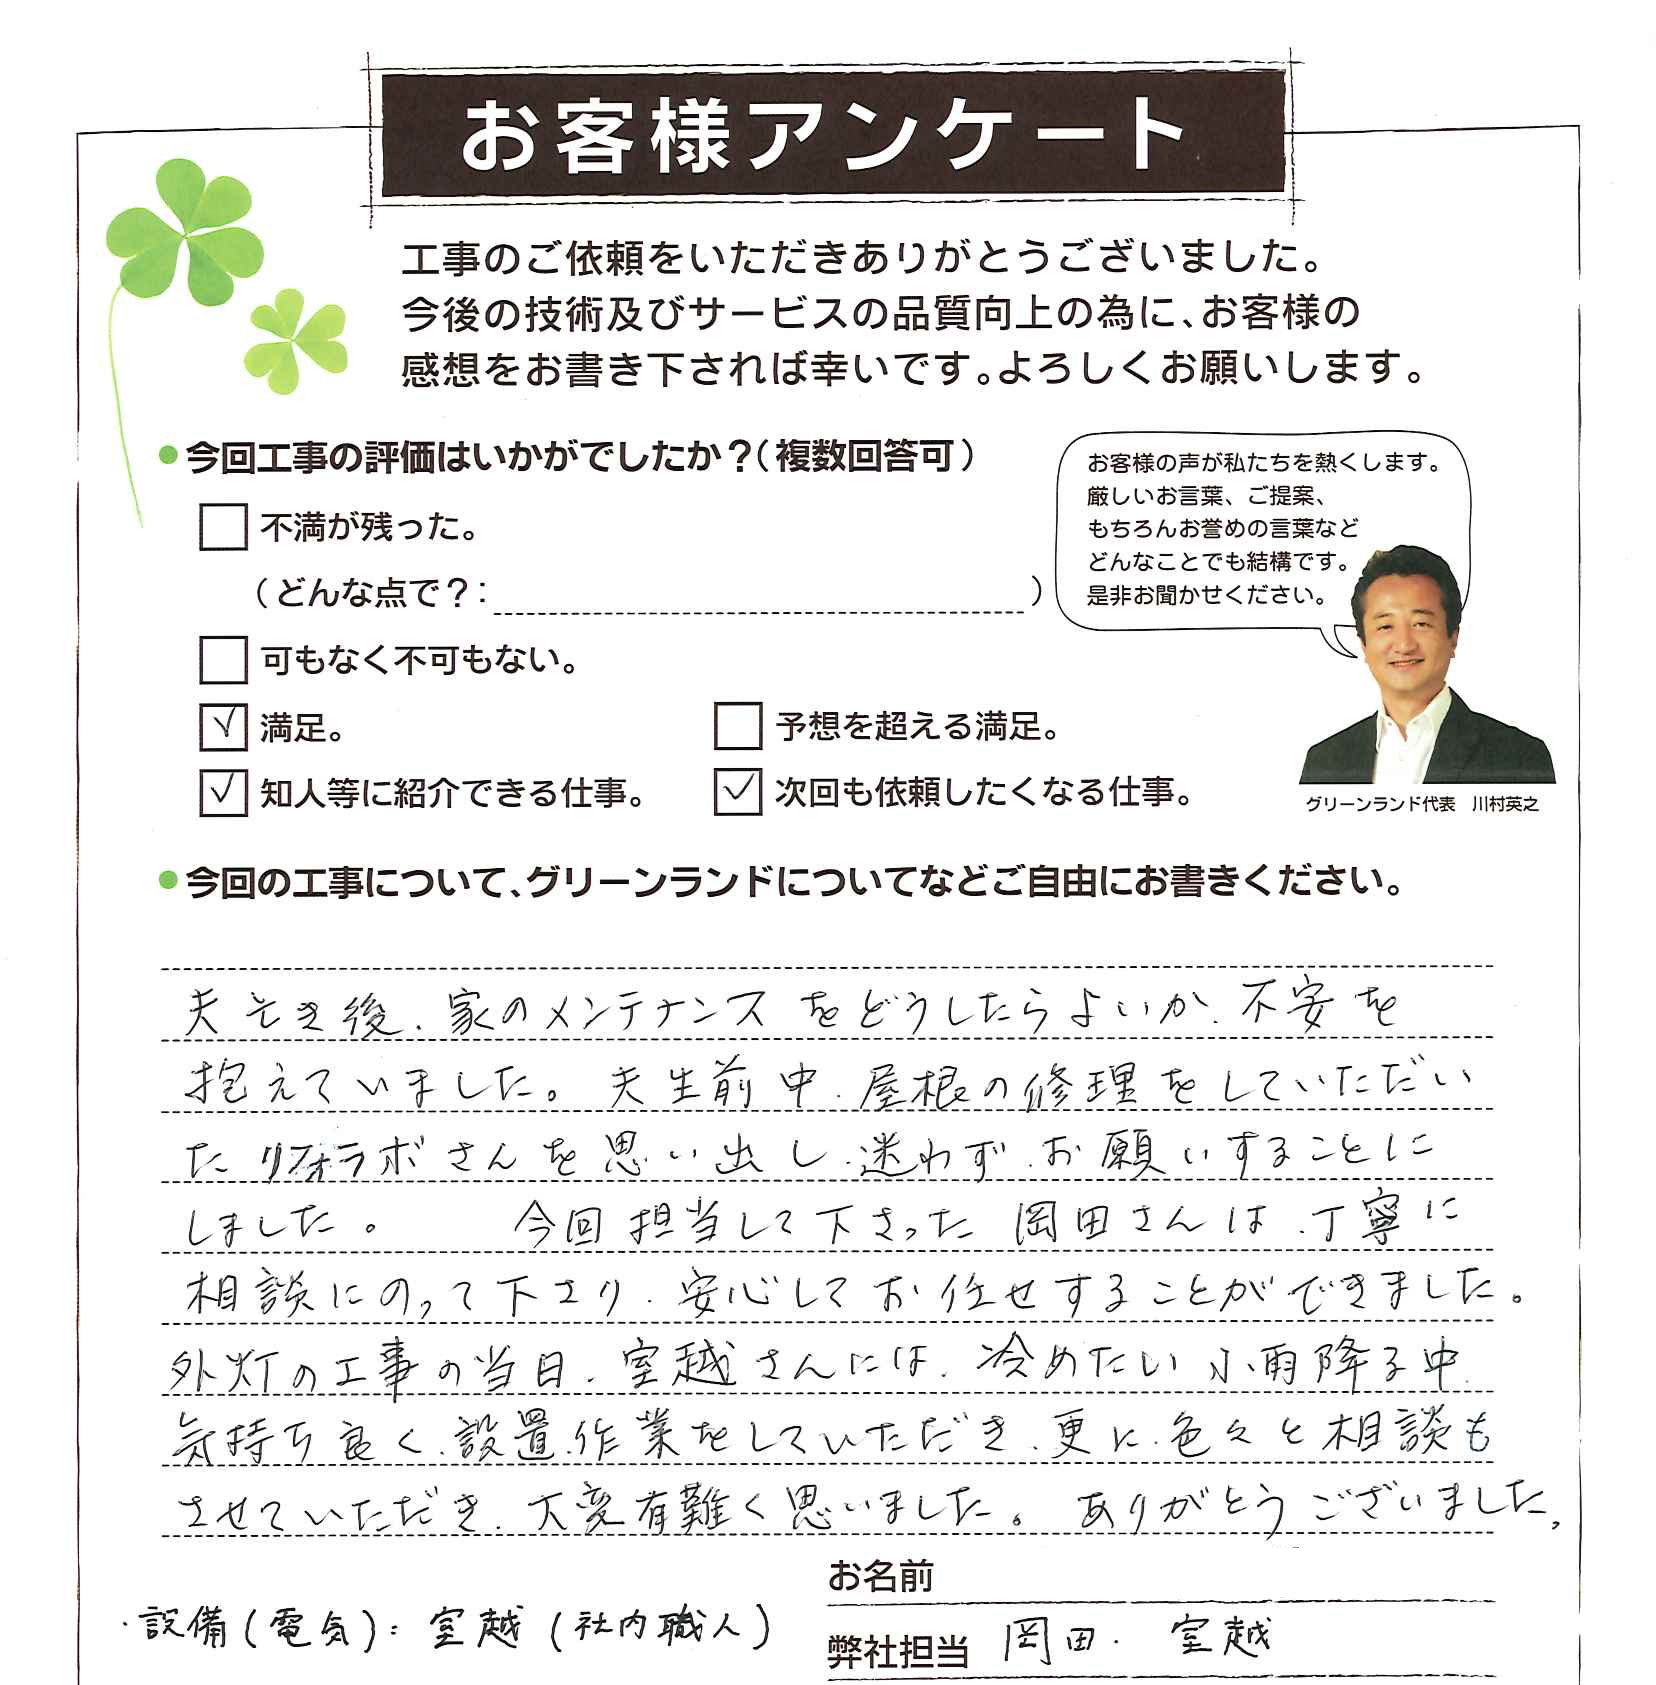 お客様アンケート
工事のご依頼をいただきありがとうございました。
今後の技術及びサービスの品質向上の為に、お客様の
感想をお書き下されば幸いです。よろしくお願いします。
●今回工事の評価はいかがでしたか？（複数回答可）
不満が残った。
（どんな点で？：　）
可もなく不可もない。
☑満足。
予想を超える満足。
☑知人等に紹介できる仕事。
☑次回も依頼したくなる仕事。
お客様の声が私たちを熱くします。
厳しいお言葉、ご提案、
もちろんお誉めの言葉など
どんなことでも結構です。
是非お聞かせください。
グリーンランド代表　川村英之
●今回の工事について、グリーンランドについてなどご自由にお書きください。
夫亡き後、家のメンテナンスをどうしたらよいか、不安を
抱えていました。夫生前中、屋根の修理をしていただい
たリフォラボさんを思い出し、迷わず、お願いすることに
しました。　今回担当して下さった岡田さんは、丁寧に
相談にのって下さり、安心してお任せすることができました。
外灯の工事の当日、室越さんには、冷めたい小雨降る中、
気持ち良く、設置作業をしていただき、更に、色々と相談も
させていただき、大変有難く思いました。ありがとうございました。
お名前
・設備(電気)：室越(社内職人)
弊社担当　岡田・室越